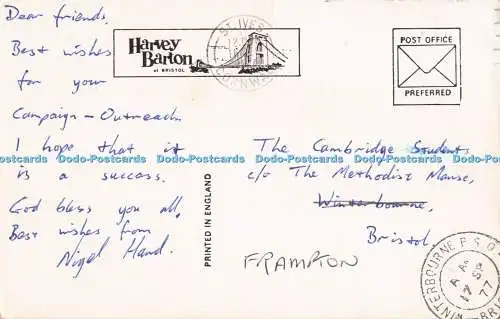 Dear friends.
Best wishes
for your
Campaign - Outreach
I hope that it
is a success.
God bless you all.
Best wishes from
Nigel Hand.
Harvey
Barton
of BRISTOL
ST. IVES
CORNWALL
POST OFFICE
PREFERRED
PRINTED IN ENGLAND
The Cambridge Students
c/o The Methodist Manse,
Winterbourne,
Bristol.
FRAMPTON
WINTERBOURNE P.S.O.
A
17 SP
77
Dodo-Postcards Dodo-Postcards Dodo-Postcards Dodo-Postcards Dodo-Postcards Dodo-Postcards